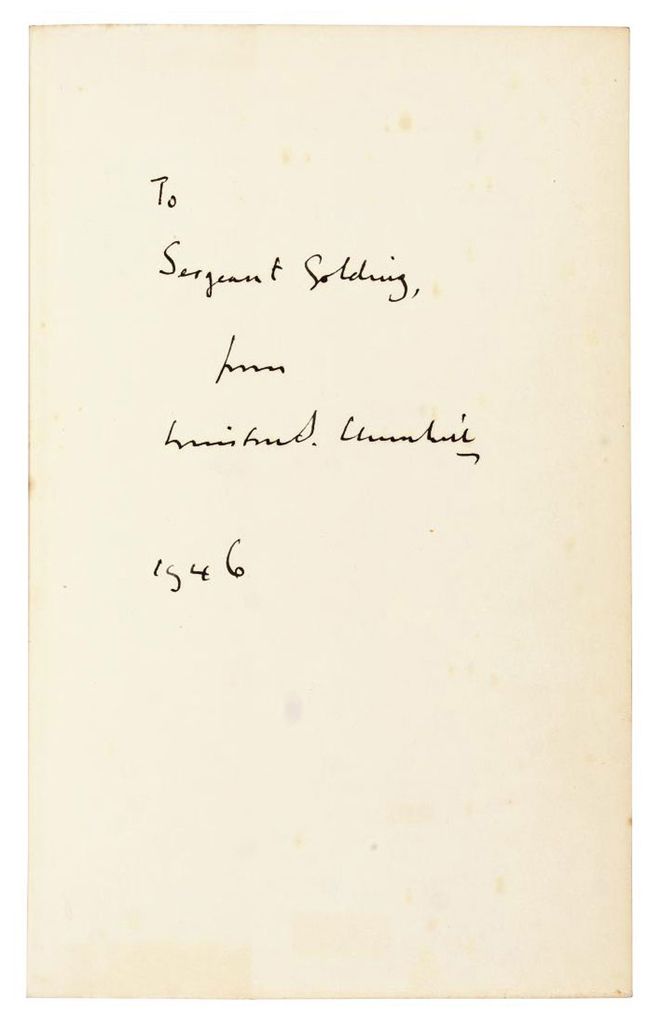 To
Sergeant Golding,
from
Winston S. Churchill
1946